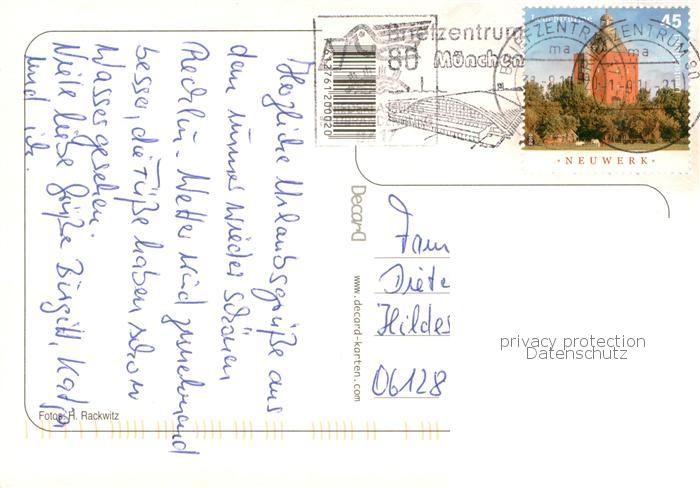 Herzliche Urlaubsgrüße aus
dem immer wieder schönen
Rechlin. Wetter wird zunehmend
besser, die Füße haben schon
Wasser gesehen.
Viele liebe Grüße Birgitt, Katja
und
Fotos: H. Rackwitz
Decard
www.decard-karten.com
Briefzentrum
80 München
45
BRIEFZENTRUM
ma
ma
· NEUWERK ·
Fam
Diete
Hildes
06128
privacy protection
Datenschutz